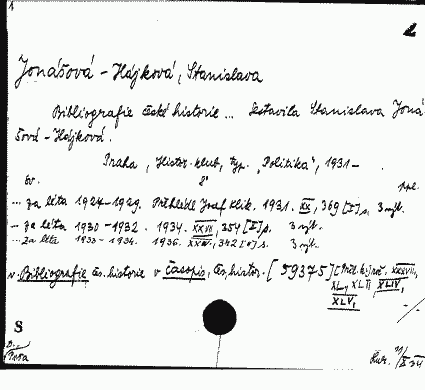 1
Jonášová-Hájková, Stanislava
Bibliografie české historie... Sestavila Stanislava Joná
šová-Hájková.
Praha, Histor. klub, typ. „Politika", 1931-
sv. 8°
... za léta 1927-1929. Přehlédl Josef Klik. 1931. XX, 369 [I] s. 3 výt.
- za léta 1930-1932. 1934. XXVII, 354 [I] s. 3 výt.
... za léta 1933-1934. 1936. XXIV, 342 [II] s. 3 výt.
v. Bibliografie čs. historie v Časopis, čes. histor. [59375]
XL, XLII, XLIV,
XLV,
S